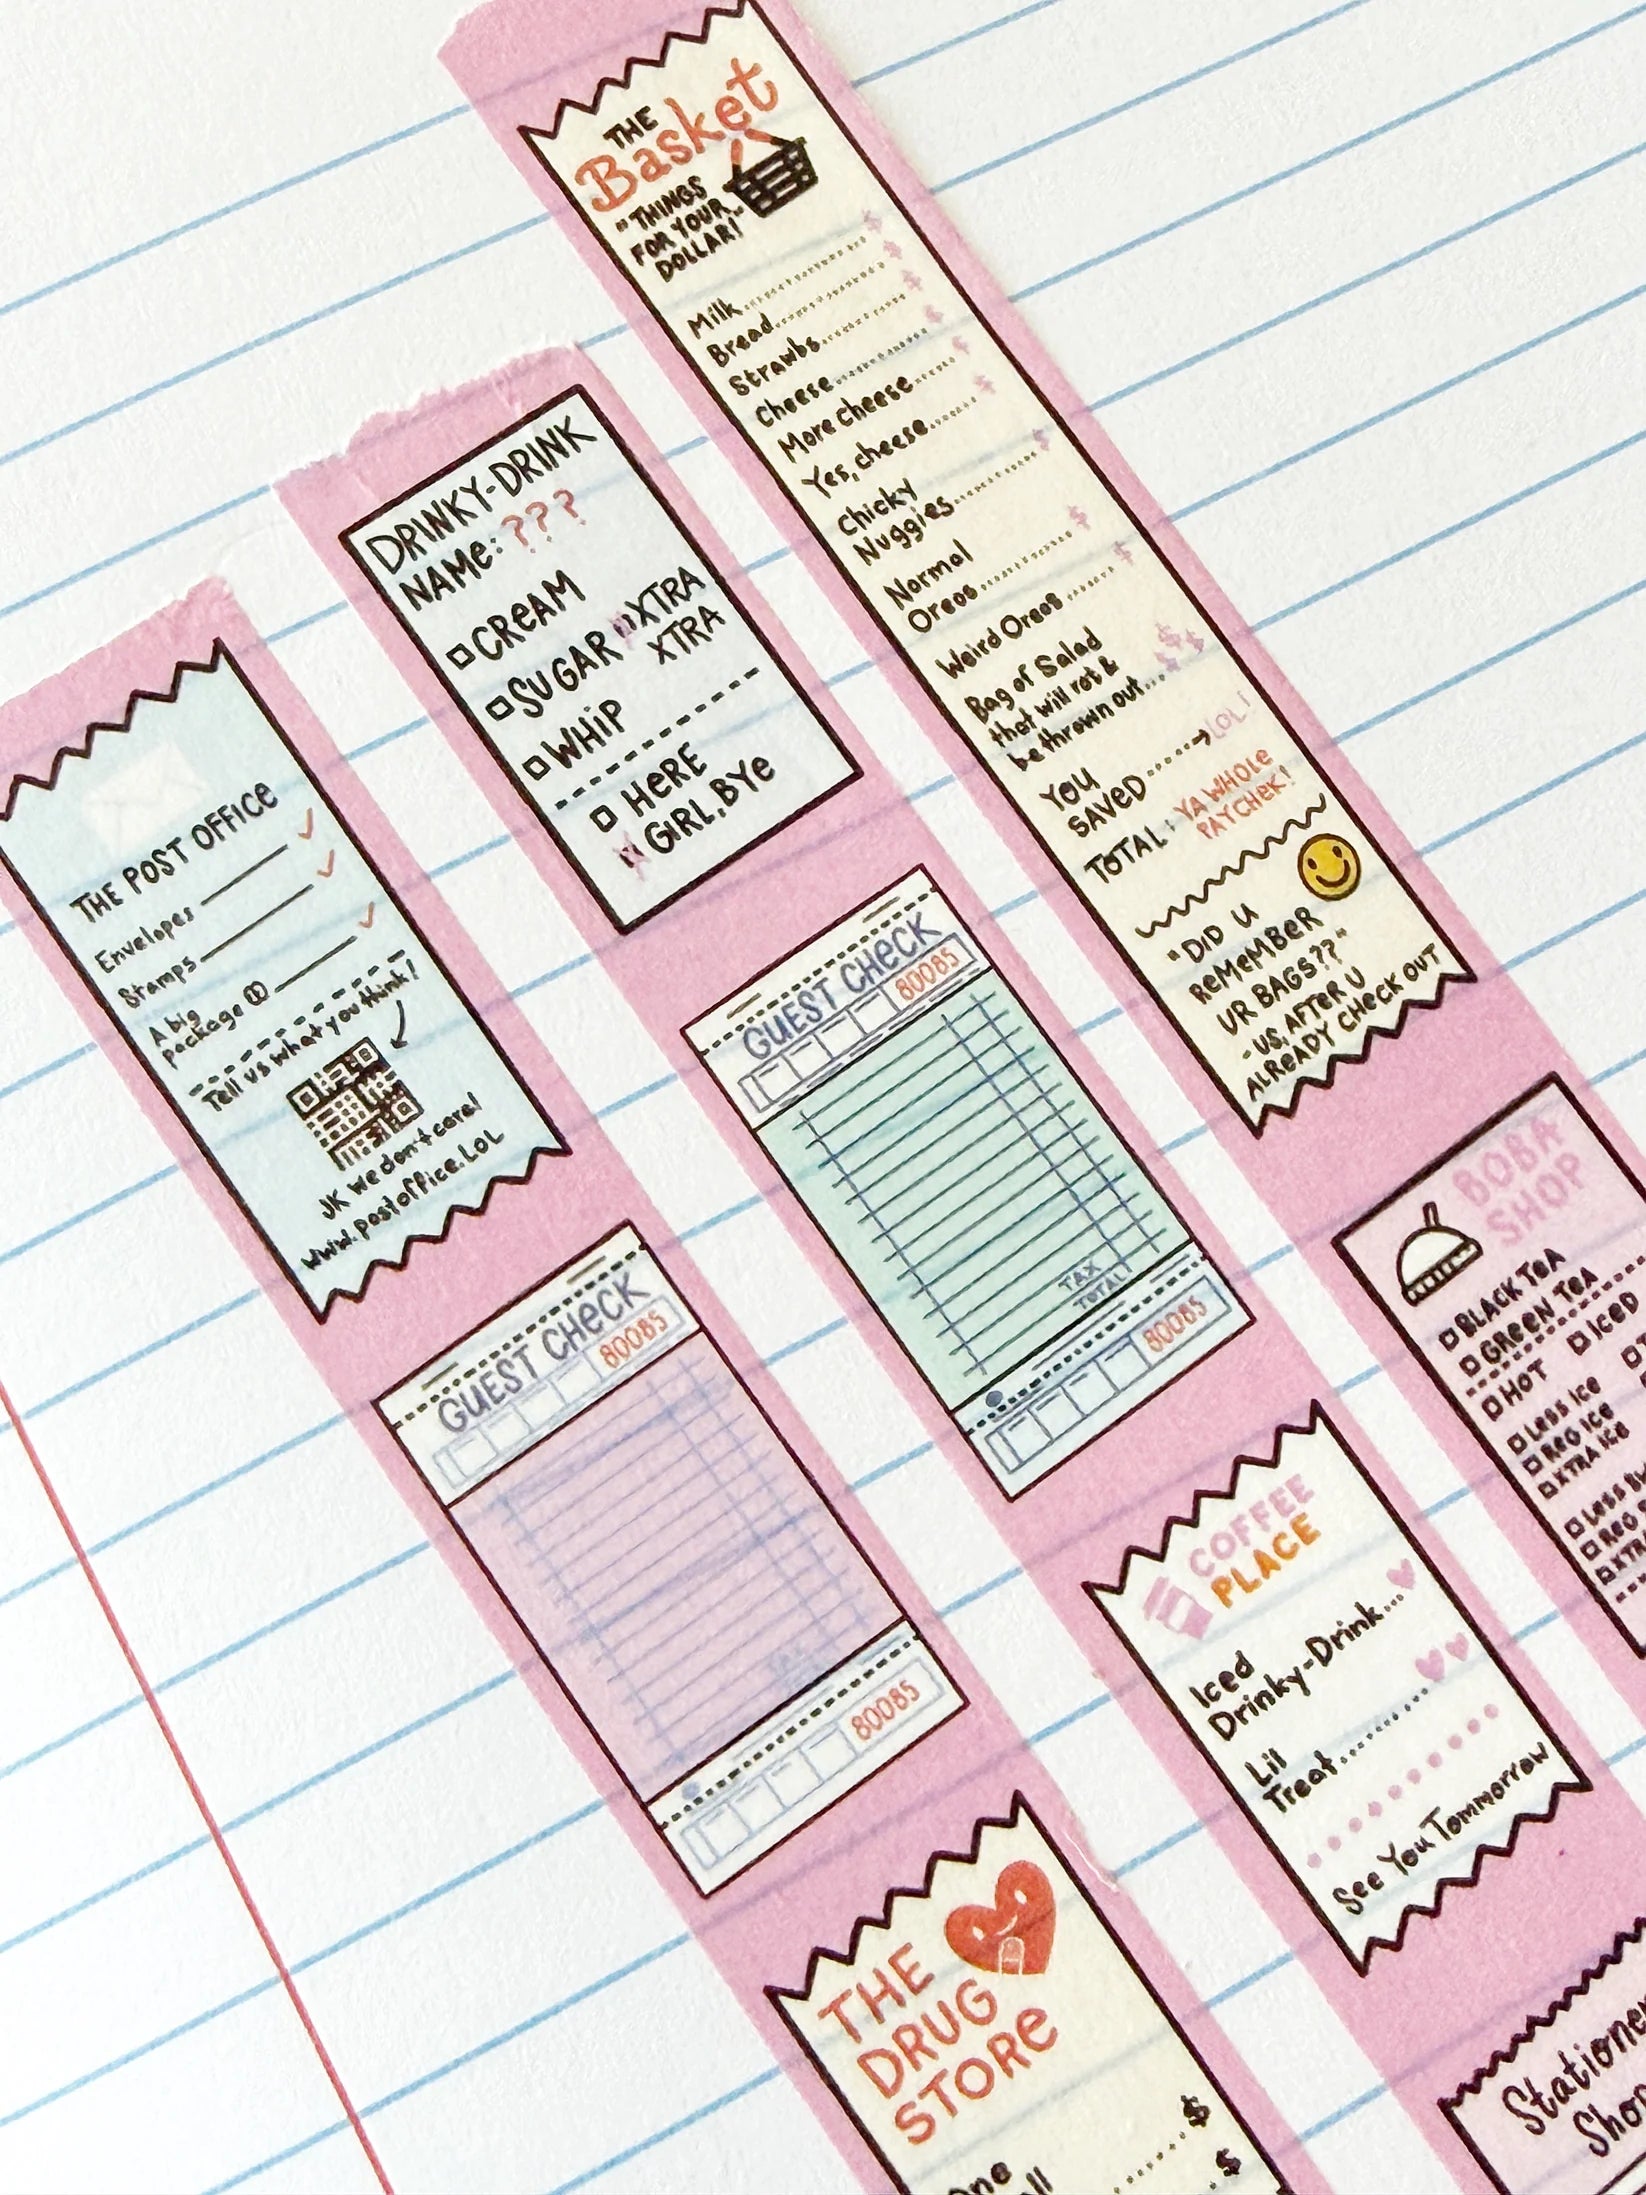 THE POST OFFICE
Envelopes
Stamps
A big
package
Tell us what you think!
JK we don't care!
www.postoffice.LOL
GUEST CHECK
80085
80085
THE
DRUG
STORE
$
$
DRINKY-DRINK
NAMe: ???
CREAM
SUGAR XTRA
XTRA
WHiP
HeRE
GiRL, BYe
GUEST CHecK
80085
TAX
TOTAL
80085
COFFEE
PLACE
Iced
Drinky-Drink...
Lil
Treat
See You Tommorrow
Stationery
THE
Basket
"THINGS
FOR YOUR
DOLLAR!"
Milk $
Bread $
Strawbs $
Cheese $
More Cheese $
Yes, cheese $
Chicky
Nuggies $
Normal
Oreos $
Weird Oreos $
Bag of Salad $
that will rot & $
be thrown out... $
YOU
SAVED LOL!
TOTAL: YA WHOLE
PAYCHEK!
"DID U
ReMeMBeR
UR BAGS??"
- US, AFTeR U
ALReADY CHeCK OUT
BOBA
SHOP
BLACK TeA
GReeN TeA
HOT ICeD
Less Ice
ReG Ice
XTRA Ice
Less
ReG